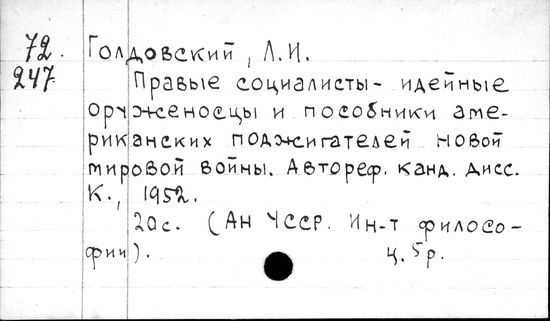 72. Голдовский, Л.И.
247 Правые социалисты - идейные
оруженосцы и пособники аме-
риканских поджигателей новой
мировой войны. Автореф. канд. дисс.
К., 1952.
20 с. (Ан УССР. Ин-т филосо-
фии). ц. 5 р.